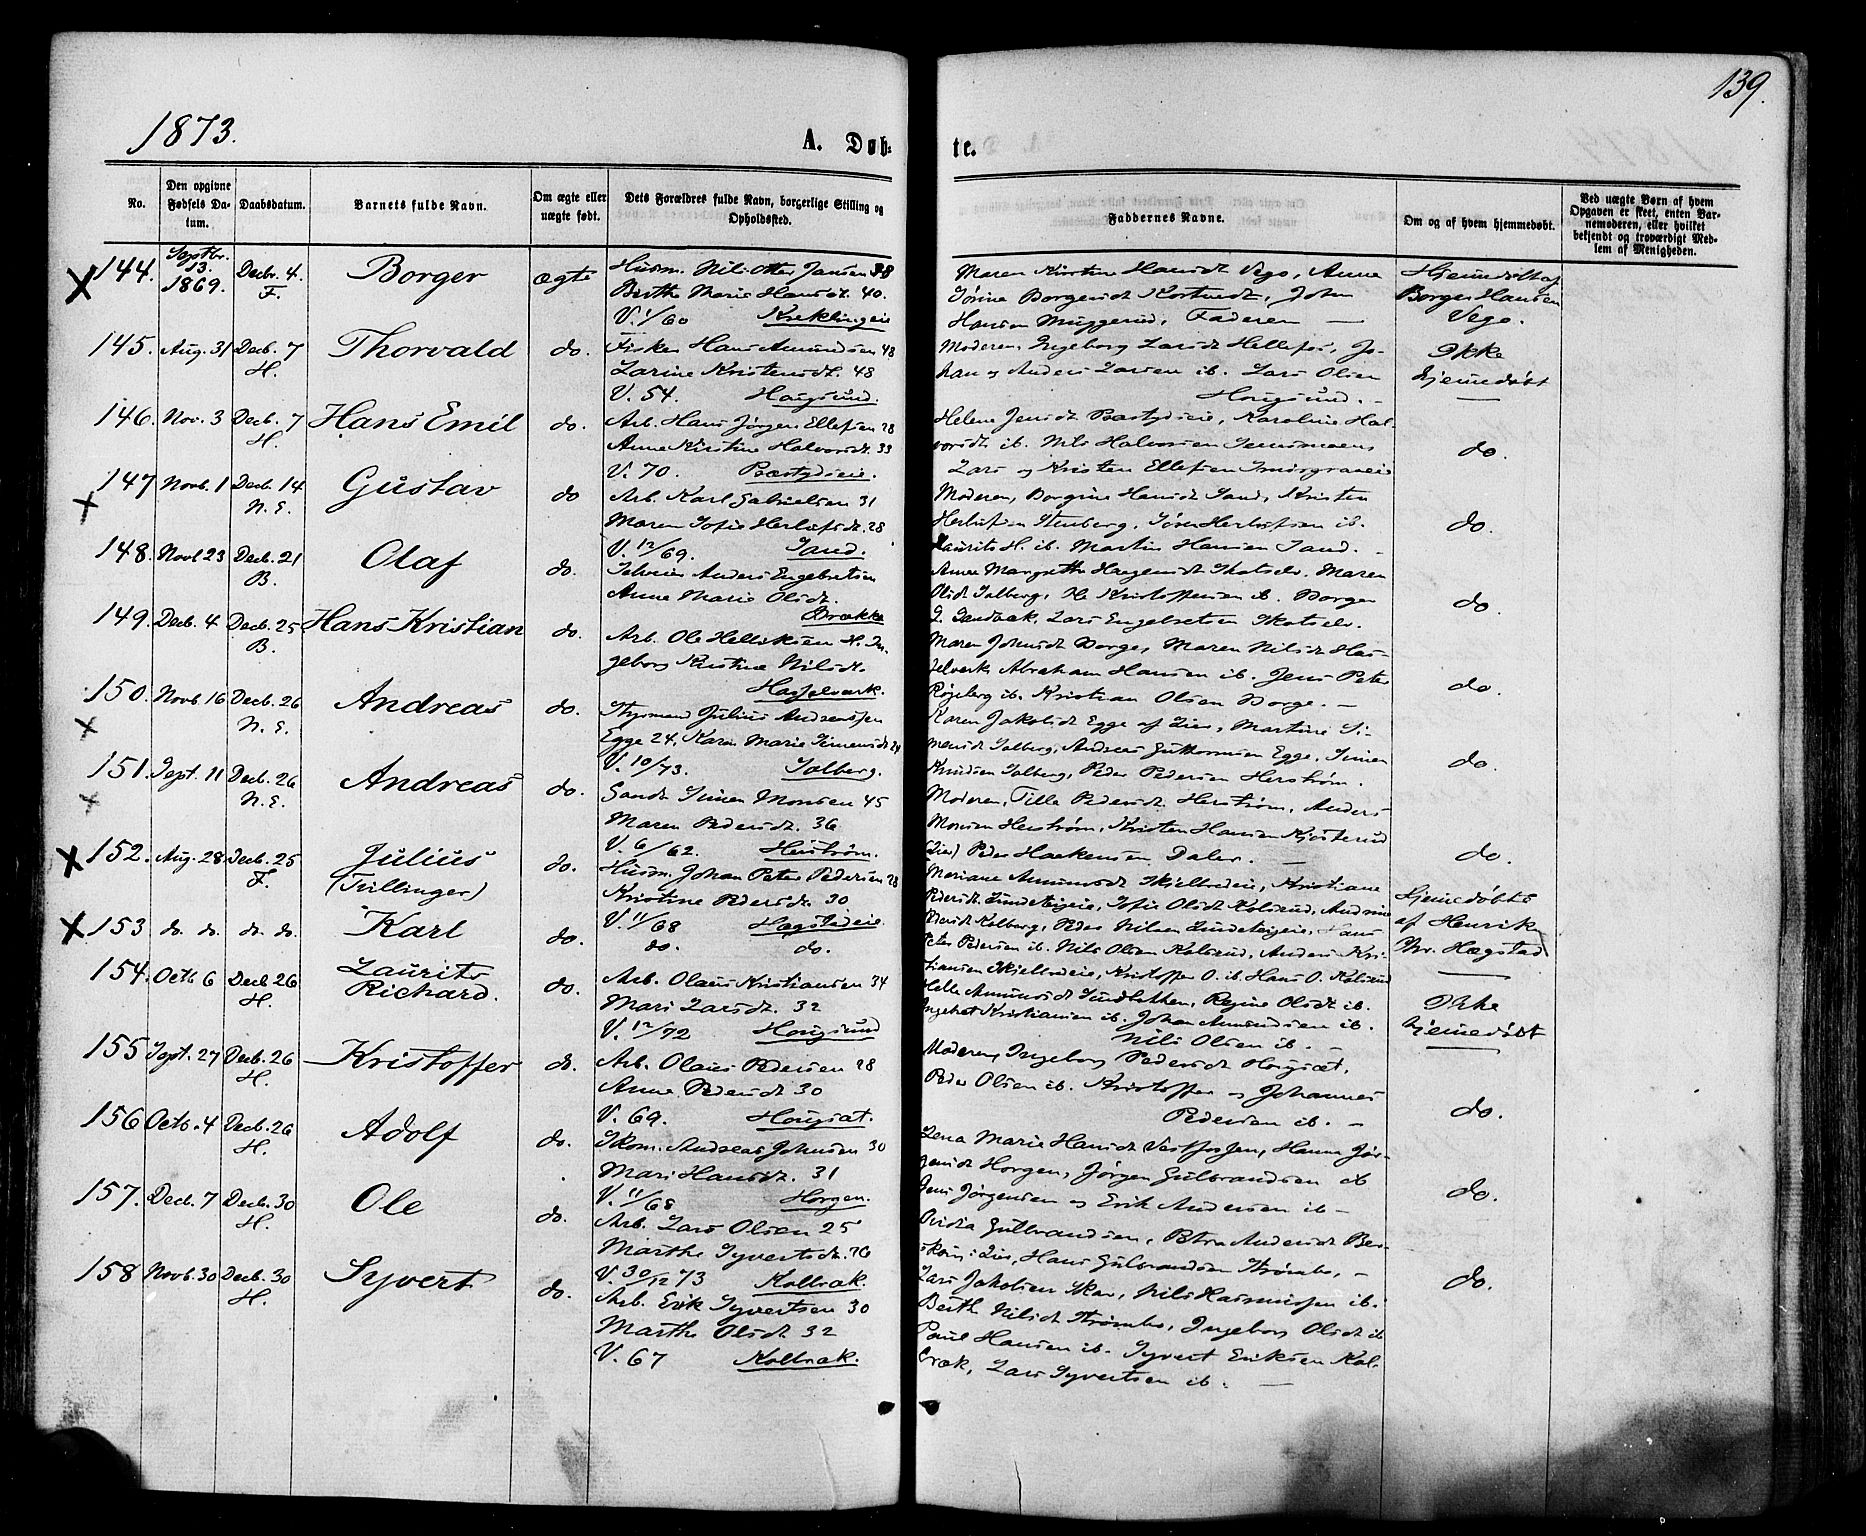 139.
1873.
A. Døb-
te.
No.
Den opgivne
Fødsels Da-
tum.
Daabsdatum.
Barnets fulde Navn.
Om ægte eller
uægte født.
Dets Forældres fulde Navn, borgerlige Stilling og
Opholdssted.
Faddernes Navne.
Om og af hvem hjemmedøbt.
Ved uægte Børn af hvem
Opgaven er skeet, enten Bar-
nemoderen, eller hvilket
bekjendt og troværdigt Med-
lem af Menigheden.
144. Septbr. 13. 1869. Decbr. 4. F. Borger ægte
Husm. Nils Otter Jansen 38
Berthe Marie Hansdt. 40.
V. 1/60 Kreklingeie
Maren Kirstine Hansdt Vego, Anne
Sørine Borgersdt Kortnedt, John
Hansen Muggerud, Faderen —
Hjemdøbt af
Borger Hansen
Vego.
145. Aug. 31 Decb. 7 H. Thorvald do.
Fisker Hans Amundsen 48
Larine Kristensdt. 48
V. 54. Hougsund.
Moderen, Ingeborg Larsdt Hellefos, Jo-
han og Anders Larsen ib. Lars Olsen
Hougsund. -
Ikke
hjemedøbt
146. Nov. 3 Decb. 7 H. Hans Emil do.
Arb. Hans Jørgen Ellefsen 28
Anne Kirstine Halvorsdt. 33
V. 70. Bastydieie.
Helene Jensdt Bastydieie, Karoline Hal-
vorsdt ib. Nils Halvorsen
Lars og Kristen Ellefsen
do.
147 Novb. 1 Decb. 14 N. E. Gustav do
Arb. Karl Gabrielsen 31
Maren Sofie Herlofsdt. 28
V. 12/69. Sand.
Moderen, Borgine Hansdt Sand, Kristen
Herlofsen Stenberg, Søren Herlofsen ib.
Laurits H. ib. Martin Hansen Sand. -
do.
148. Novb 23 Decb. 21 B. Olaf do.
Selveier Anders Engebretsen
Anne Marie Olsdt.
Brække
Anne Margrethe Haagensdt Skotselv. Maren
Olsdt Solberg, Ole Kristoffersen ib. Borger
G. Sandbak, Lars Engebretsen Skotselv.
do.
149. Decb. 4 Decb. 25 B. Hans Kristian do.
Arb. Ole Helliksen H. In-
geborg Kristine Nilsdt.
Hasselværk.
Maren Johnsdt Borge, Maren Nilsdt Has-
selværk Abraham Hansen ib. Jens Peter
Røjeberg ib. Kristian Olsen Borge. -
do.
150. Novb. 16 Decb. 26 N. E. Andreas do.
Styrmand Julius Andreassen
Egge 24, Karen Marie Simensdt 24
V. 10/73. Solberg.
Karen Jakobsdt Egge af Lier, Martine Si-
mensdt Solberg, Andreas Guttormsen Egge, Simen
Knudsen Solberg, Peder Pedersen Herstrøm.
do.
151. Sept. 11 Decb. 26 N. E. Andreas do.
Gaardb. Simen Monsen 45
Maren Pedersdt. 36
V. 6/62. Herstrøm.
Moderen, Tille Pedersdt. Herstrøm, Anders
Monsen Herstrøm, Kristen Hansen Kjosterud
(Lier) Peder Haakensen Daler. —
do.
152. Aug. 28 Decb. 25 F. Julius
(Tvillinger) do.
Husm. Johan Peter Pedersen 28
Kristine Pedersdt. 30
V. 11/68 Hægstadeie
Mariane Amundsdt Skjelbredeie, Kristiane
Pedersdt Lundeteigeie, Sofie Olsdt Kolsrud, Andrine
Pedersdt Kolberg, Peder Nilsen Lundeteigeie, Hans
Peter Pedersen ib. Nils Olsen Kolsrud, Anders Kri-
stiansen Skjelbredeie, Kristoffer O. ib. Hans O. Kolsrud
Hjemedøbte
af Henrik
Hægstad
153 do. do. do. do. Karl do.
do. do.
154. Octb 6 Decb 26 H. Laurits
Richard. do.
Arb. Olaus Kristiansen 34
Mari Larsdt. 32
V. 12/72 Hougsund
Helle Amundsdt Sundbakken, Regine Olsdt ib.
Ingebret Kristiansen ib. Johan Amundsen ib.
Nils Olsen ib. -
Ikke
hjemedøbt
155 Sept. 27 Decb. 26 H. Kristoffer do.
Arb. Olaus Pedersen 28
Anne Pedersdt 30
V. 69. Hougsæt.
Moderen, Ingeborg Pedersdt Hougsæt,
Peder Olsen ib. Kristoffer og Johannes
Pedersen ib. -
do.
156 Octb. 4 Decb. 26 H. Adolf do.
Skom. Andreas Johnsen 30
Mari Hansdt. 31
V. 11/68 Horgen.
Lena Marie Hansdt Vestfossen, Hanna Jør-
gensdt Horgen, Jørgen Gulbrandsen ib
Jens Jørgensen og Erik Andersen ib -
do.
157. Decb. 7 Decb. 30 H. Ole do.
Arb. Lars Olsen 25
Marthe Syvertsdt. 26
V. 30/12 73 Kolbræk.
Gulbrandsen, Petra Andersdt Ber-
skou i Lier, Hans Gulbrandsen Strømbo, -
Lars Jakobsen Skar, Nils Rasmussen ib.
do.
158 Novb. 30 Decb. 30 H. Syvert do.
Arb. Erik Syvertsen 30
Marthe Olsdt 32
V. 67 Kolbræk.
Berth Nilsdt Strømbo, Ingeborg Olsdt ib
Paul Hansen ib. Syvert Eriksen Kol-
bræk, Lars Syvertsen ib. —